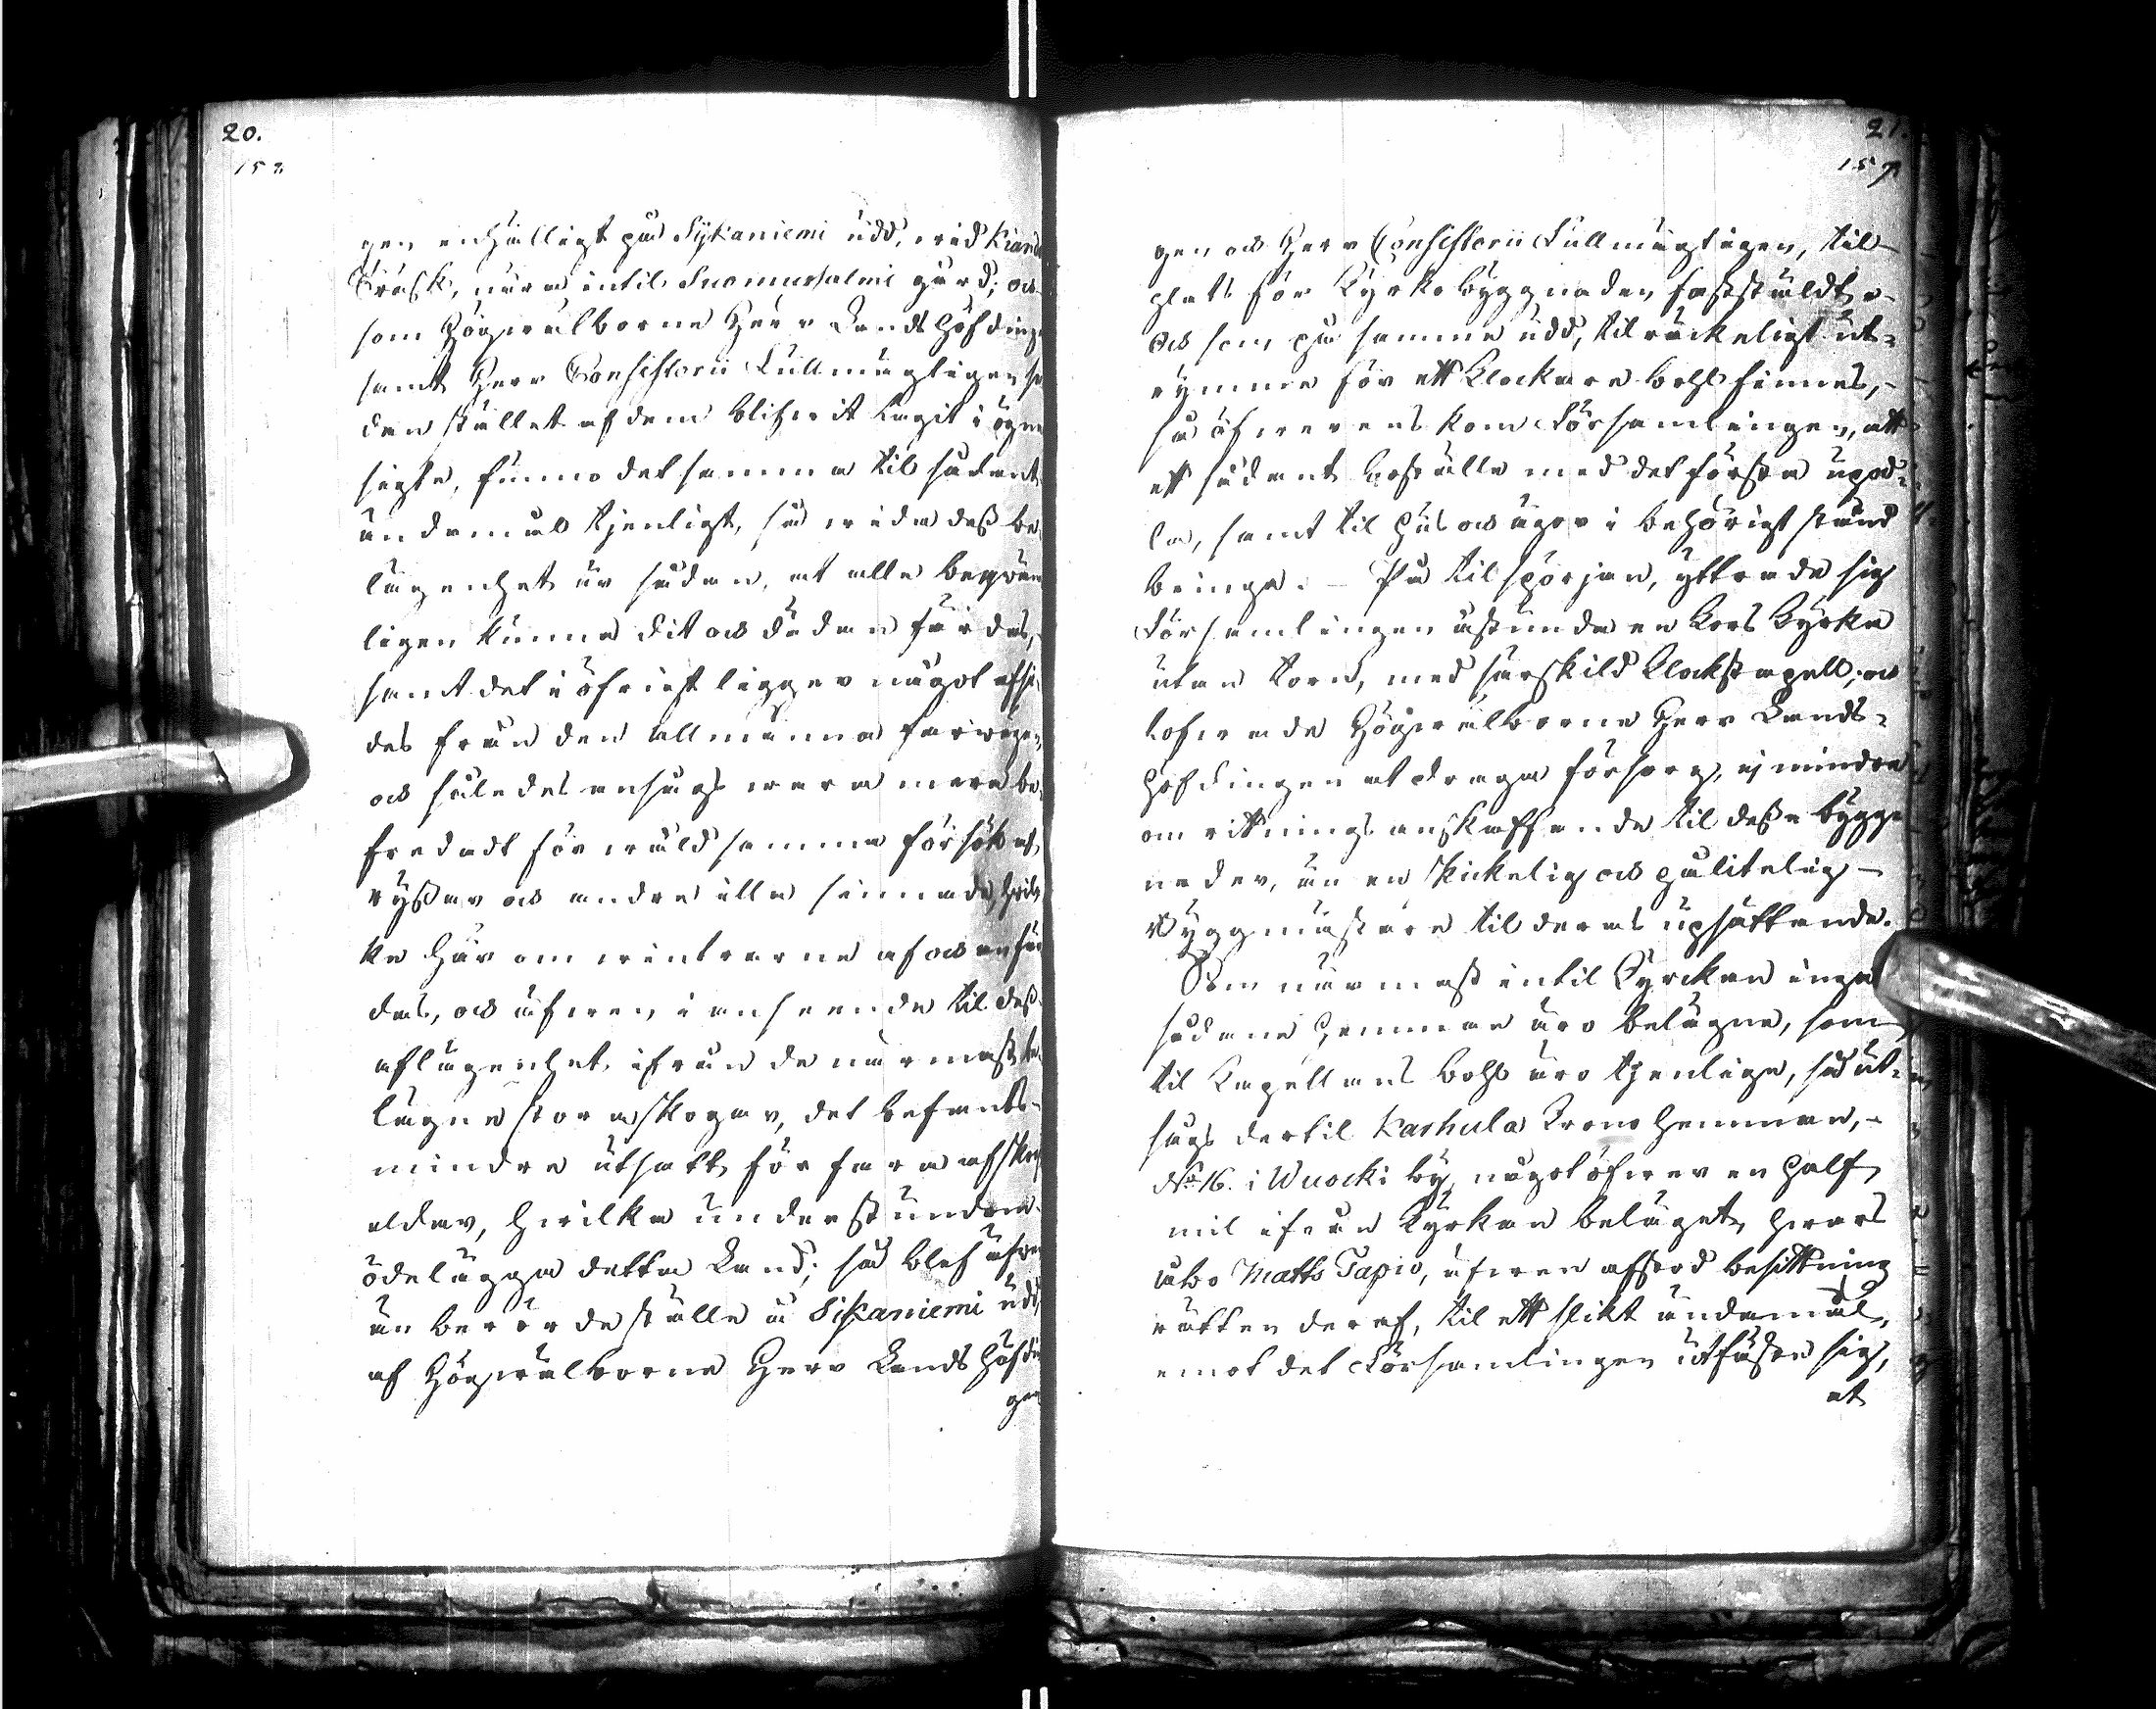 20.
153
gen enhälligt på Sykaniemi udd, wid Kianda
Träsk, nära intil Suomussalmi gård; och
som Högwälborne Herr Landshöfdingen
samt Herr Consistorii Fullmägtigen se-
dan stället af dem blifwit tagit i ögne
sigte, funno det samma til sådant
ändamål tjenligt, så wida dess be-
lägenhet är sådan, at alla beqwäm
ligen kunna dit och dädan färdas,
samt det i öfrigt ligger något afsi-
des från den allmänna farwägen,
och således ansågs wara mera be-
fredadt för wåldsamma försök af
ryssar och andra illa sinnade, hwil-
ka här om wintrarne af och an fär-
das, och äfwen i anseende til dess
aflägenhet ifrån de närmast be-
lägna stora skogar, det befants
mindre utsatt för fara af skogs
eldar, hwilka understundom
ödelägga detta Land; så blef äfwen
än berörde ställe å Sikaniemi udd,
af Högwälborne Herr Landshöfdin
gen
21.
157
gen och Herr Consistorii Fullmägtigen, til
plats för Kyrkobyggnaden fastställdt
och som på samma udd, tilräckeligt ut-
rymme för ett Klockare bohl finnes,
så öfwerenskom Församlingen, att
ett sådant boställe med det första upod-
la, samt til hus och ägor i behörigt stånd
bringa. – På tilspörjan, yttrade sig
Församlingen åstunda en Kors Kyrka
utan torn, med särskild Klockstapell; och
lofwade Högwälborne Herr Lands-
höfdingen at draga försorg, ej mindre
om ritnings anskaffande til dessa bygg-
nader, än en skickelig och pålitelig
Byggmästare til deras upsättande.
Som närmast intil Kyrckan inga
sådane Hemman äro belägne, som
til Kapellans bohl äro tjenlige, så ut-
sågs dertil Karhula Krono Hemman,
No 16. i Wuocki by, något öfwer en half
mil ifrån Kyrkan beläget, hwars
åbo Matts Tapio, äfwen afstod besittning
rätten deraf, til ett slikt ändamål,
emot det Församlingen utfäste sig,
at